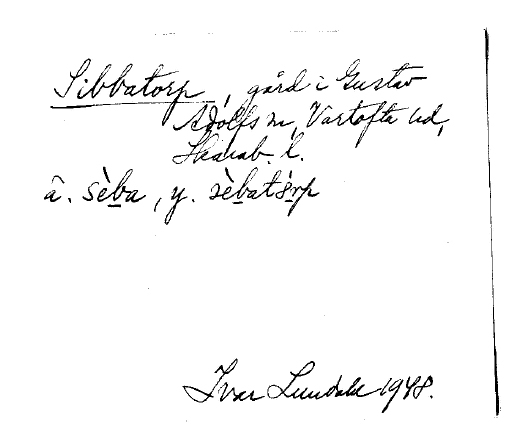 Sibbatorp, gård i Gustav
Adolfs sn, Vartofta hd,
Skarab. l.
ä. sèba, y. sèbatȯrp
Ivar Lundahl 1948.